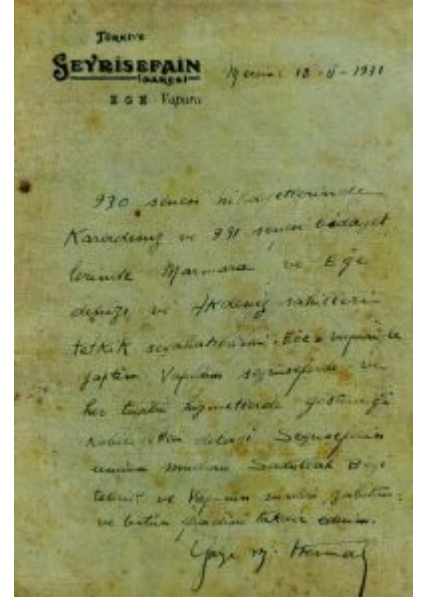 TÜRKİYE
SEYRİSEFAİN
İDARESİ
EGE Vapuru
Mersin: 18-II-1931
930 senesi nihayetlerinde
Karadeniz ve 931 senesi bidayet
lerinde Marmara ve Ege
denizi ve Akdeniz sahilleri
tetkik seyahatlerini Ege vapuru ile
yaptım Vapurun seyrüseferde ve
her türlü hizmetlerde gösterdiği
kabiliyetten dolayı Seyrisefain
umum müdürü Sadullah Beyi
tebrik ve Vapurun süvari, zabitan
ve bütün efradını takdir ederim.
Gazi M. Kemal